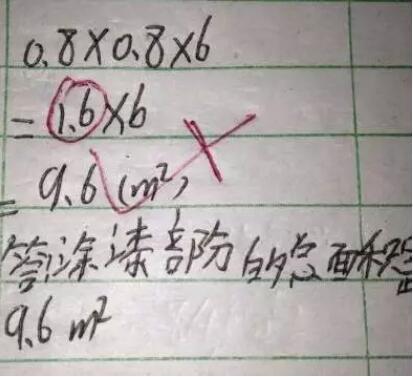 0.8×0.8×6
=1.6×6
=9.6(m²)
答涂漆部分的总面积是
9.6 m²